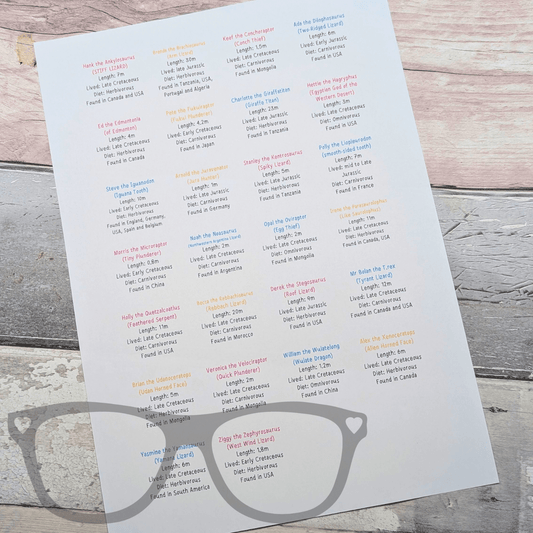 Hank the Ankylosaurus
(STIFF LIZARD)
Length: 7m
Lived: Late Cretaceous
Diet: Herbivorous
Found in Canada and USA
(Arm Lizard)
Length: 30m
Lived: late Jurassic
Diet: Herbivorous
Found in Tanzania, USA,
Portugal and Algeria
Koof the Concheraptor
(Conch Thief)
Length: 1.5m
Lived: Late Cretaceous
Diet: Carnivorous
Found in Mongolia
Ada the Dilophosaurus
(Two-Ridged Lizard)
Length: 6m
Lived: Early Jurassic
Diet: Carnivorous
Found in USA
Ed the Edmontonia
(of Edmonton)
Length: 4m
Lived: Late Cretaceous
Diet: Herbivorous
Found in Canada
(Fukui Plunderer)
Length: 4.2m
Lived: Early Cretaceous
Diet: Carnivorous
Found in Japan
Charlotte the Giraffatitan
(Giraffe Titan)
Length: 23m
Lived: Late Jurassic
Diet: Herbivorous
Found in Tanzania
Hattie the Hagryphus
(Egyptian God of the
Western Desert)
Length: 3m
Lived: Late Cretaceous
Diet: Omnivorous
Found in USA
Steve the Iguanodon
(Iguana Tooth)
Length: 10m
Lived: Early Cretaceous
Diet: Herbivorous
Found in England, Germany,
USA, Spain and Belgium
Length: 1m
Lived: Late Jurassic
Diet: Carnivorous
Found in Germany
Stanley the Kentrosaurus
(Spiky Lizard)
Length: 5m
Lived: Late Jurassic
Diet: Herbivorous
Found in Tanzania
Polly the Liopleurodon
(smooth-sided tooth)
Length: 7m
Lived: mid to Late
Jurassic
Diet: Carnivorous
Found in France
Morris the Microraptor
(Tiny Plunderer)
Length: 0.8m
Lived: Early Cretaceous
Diet: Carnivorous
Found in China
Noah the Noasaurus
(Northwestern Argentina Lizard)
Length: 2m
Lived: Late Cretaceous
Diet: Carnivorous
Found in Argentina
Opal the Oviraptor
(Egg Thief)
Length: 2m
Lived: Late Cretaceous
Diet: Omnivorous
Found in Mongolia
Length: 11m
Lived: Late Cretaceous
Diet: Herbivorous
Found in Canada, USA
Holly the Quetzalcoatlus
(Feathered Serpent)
Length: 11m
Lived: Late Cretaceous
Diet: Carnivorous
Found in USA
Length: 20m
Lived: Late Cretaceous
Diet: Carnivorous
Found in Morocco
Derek the Stegosaurus
(Roof Lizard)
Length: 9m
Lived: Late Jurassic
Diet: Herbivorous
Found in USA
Mr Bolan the T.rex
(Tyrant Lizard)
Length: 12m
Lived: Late Cretaceous
Diet: Carnivorous
Found in USA
Ariel the Udanoceratops
(Udan Horned Face)
Length: 5m
Lived: Late Cretaceous
Diet: Herbivorous
Found in Mongolia
Veronica the Velociraptor
(Quick Plunderer)
Length: 2m
Lived: Late Cretaceous
Diet: Carnivorous
Found in Mongolia
William the Wulatelong
(Wulate Dragon)
Length: 1.2m
Lived: Late Cretaceous
Diet: Omnivorous
Found in China
Alex the Xenoceratops
(Alien Horned Face)
Length: 6m
Lived: Late Cretaceous
Diet: Herbivorous
Found in Canada
Yasmine the Yamanasaurus
(Yamana Lizard)
Length: 6m
Lived: Late Cretaceous
Diet: Herbivorous
Found in South America
Ziggy the Zephyrosaurus
(West Wind Lizard)
Length: 1.8m
Lived: Early Cretaceous
Diet: Herbivorous
Found in USA